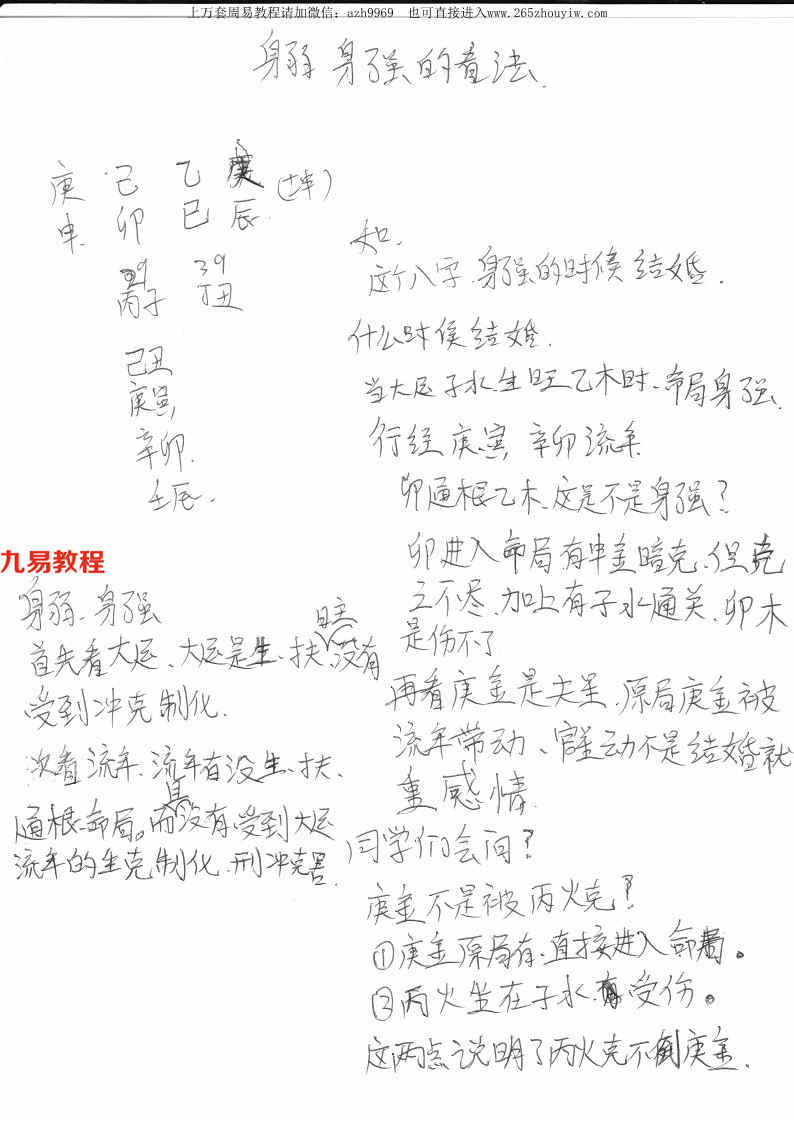 上万套周易教程请加微信：azh9969 也可直接进入www.265zhouyiw.com
身弱 身强的看法.
庚 己 乙 庚 (坤)
申. 卯 巳 辰.
29 39
丙子 丁丑
己丑
庚寅
辛卯.
壬辰.
九易教程
身弱、身强
首先看大运、大运是生、扶日主,没有
受到冲克制化.
次看流年、流年有没生、扶、
通根命局。而且没有受到大运
流年的生克制化、刑冲克害.
如.
这个八字.身强的时候结婚.
什么时侯结婚.
当大运子水生旺乙木时、命局身强.
行经庚寅, 辛卯流年.
卯通根乙木、这是不是身强?
卯进入命局.有申金暗克.但克
之不尽.加上有子水通关、卯木
是伤不了
再看庚金是夫星.原局庚金被
流年带动、官星动不是结婚就
重感情.
同学们会问?
庚金不是被丙火克?
①庚金原局有、直接进入命局。
②丙火坐在子水.有受伤。
这两点说明了丙火克不倒庚金.